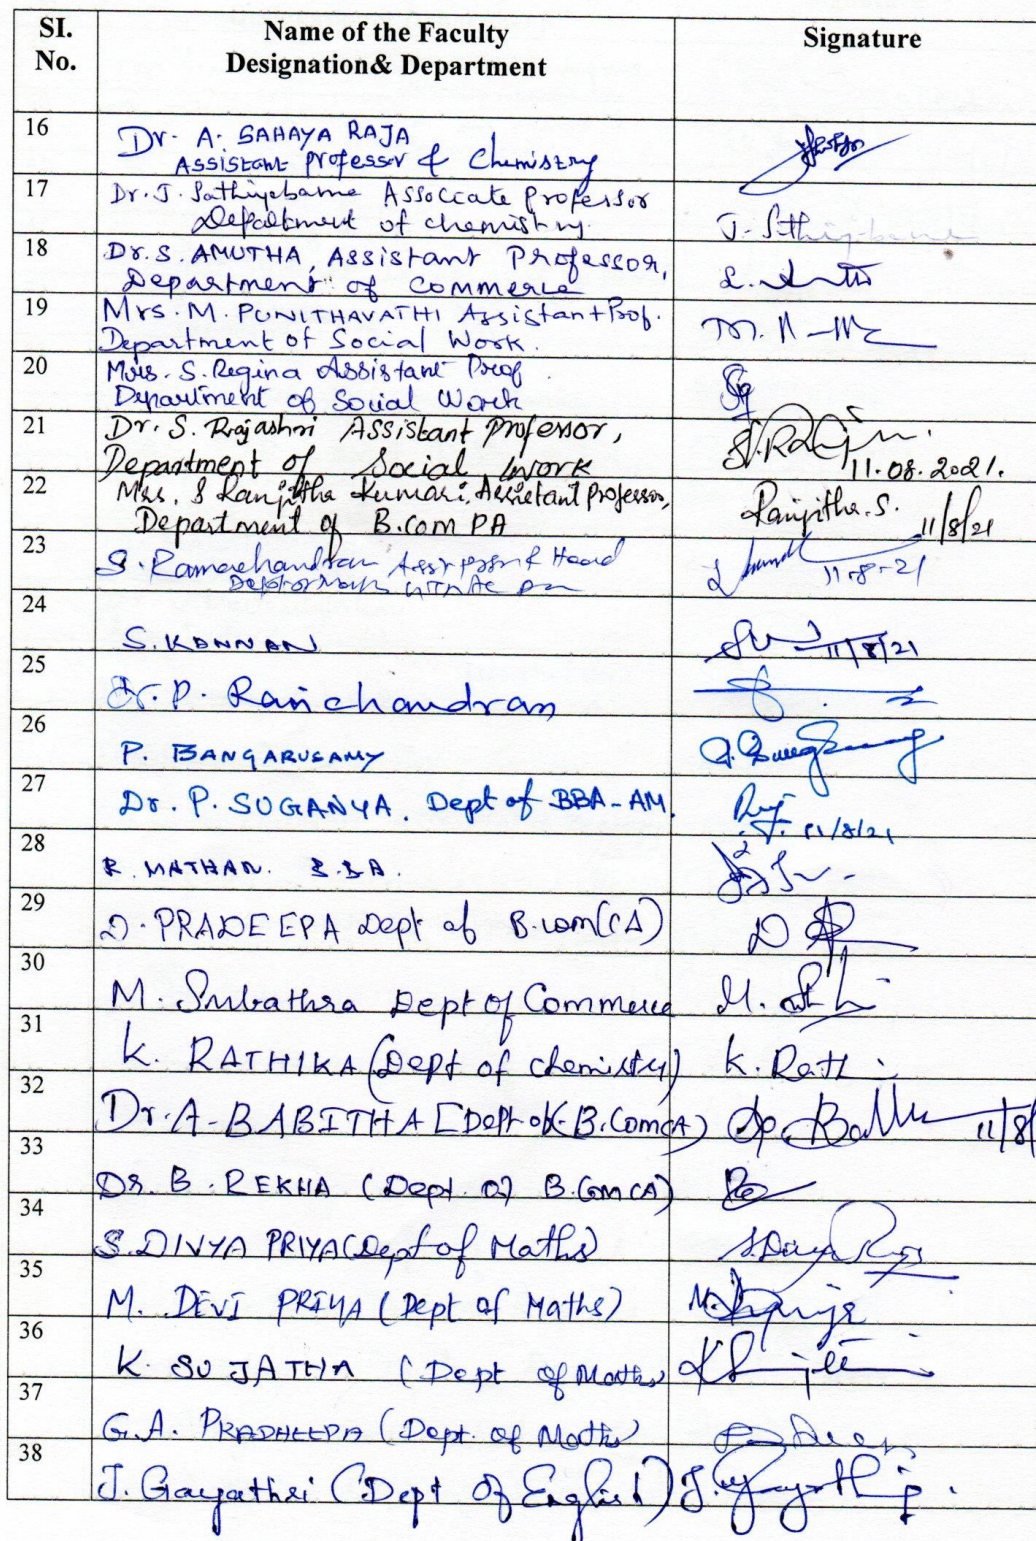 SI. No. Name of the Faculty Designation& Department Signature
16 Dr. A. SAHAYA RAJA
Assistant professor of Chemistry
17 Dr. J. Sathiyabama Associate Professor
Department of chemistry. J. Sathiyabama
18 Dr. S. AMUTHA, Assistant Professor,
Department of Commerce
19 Mrs. M. PUNITHAVATHI Assistant Prof.
Department of Social Work.
20 Mrs. S. Regina Assistant Prof
Department of Social Work
21 Dr. S. Rajashri Assistant Professor,
Department of Social Work 11.08.2021.
22 Mrs. S Ranjitha Kumari, Assistant Professor,
Department of B.Com PA Ranjitha.S. 11/8/21
23 S. Ramachandran Head
11-8-21
24 S. KANNAN 11/8/21
25 Dr. P. Ramchandran
26 P. BANGARUSAMY
27 Dr. P. SUGANYA. Dept of BBA-AM. 11/8/21
28 R. MATHAN. B.B.A.
29 D. PRADEEPA Dept of B.com(CA)
30 M. Subathra Dept of Commerce
31 K. RATHIKA (Dept of chemistry) K. Rathi
32 Dr. A. BABITHA [Dept of B.Com CA) 11/8/
33 Dr. B. REKHA (Dept. of B.Com CA)
34 S. DIVYA PRIYA (Dept of Maths)
35 M. DEVI PRIYA (Dept of Maths)
36 K. SUJATHA (Dept of Maths)
37 G.A. PRADHEEPA (Dept. of Maths)
38 J. Gayathri (Dept of English) J. Gayathri